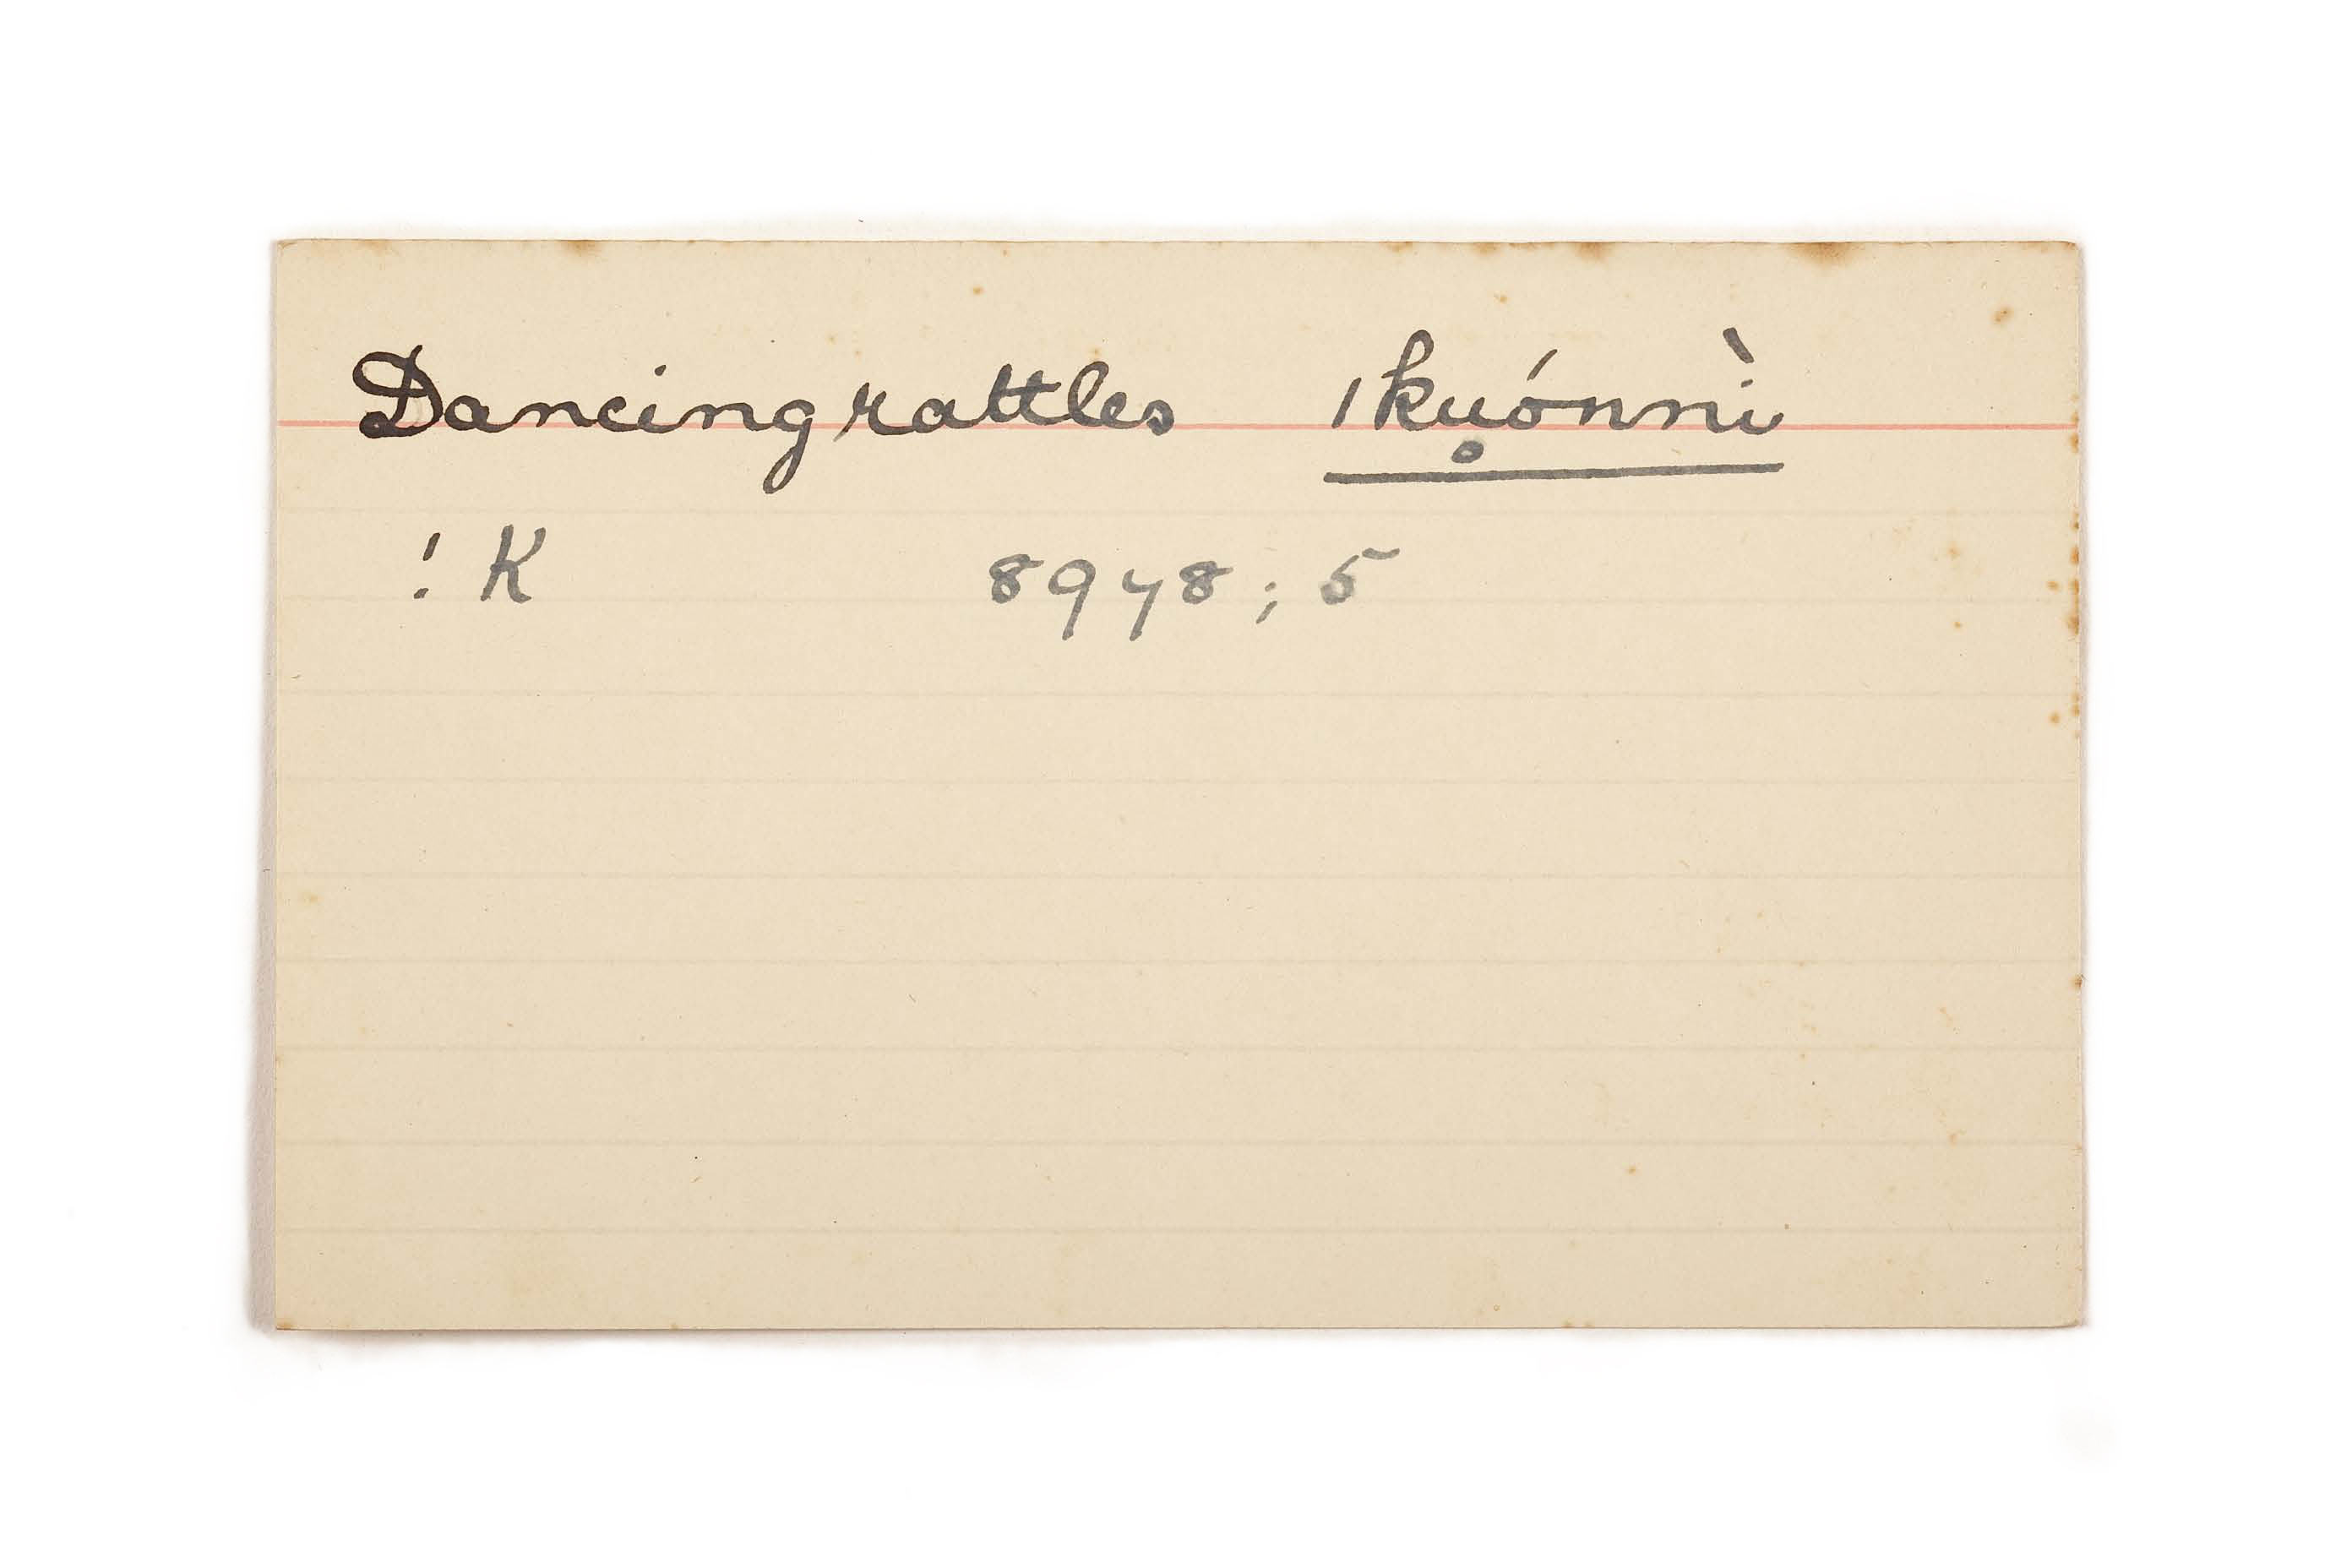 Dancing rattles ǀku̥ónnì
!K 8978; 5